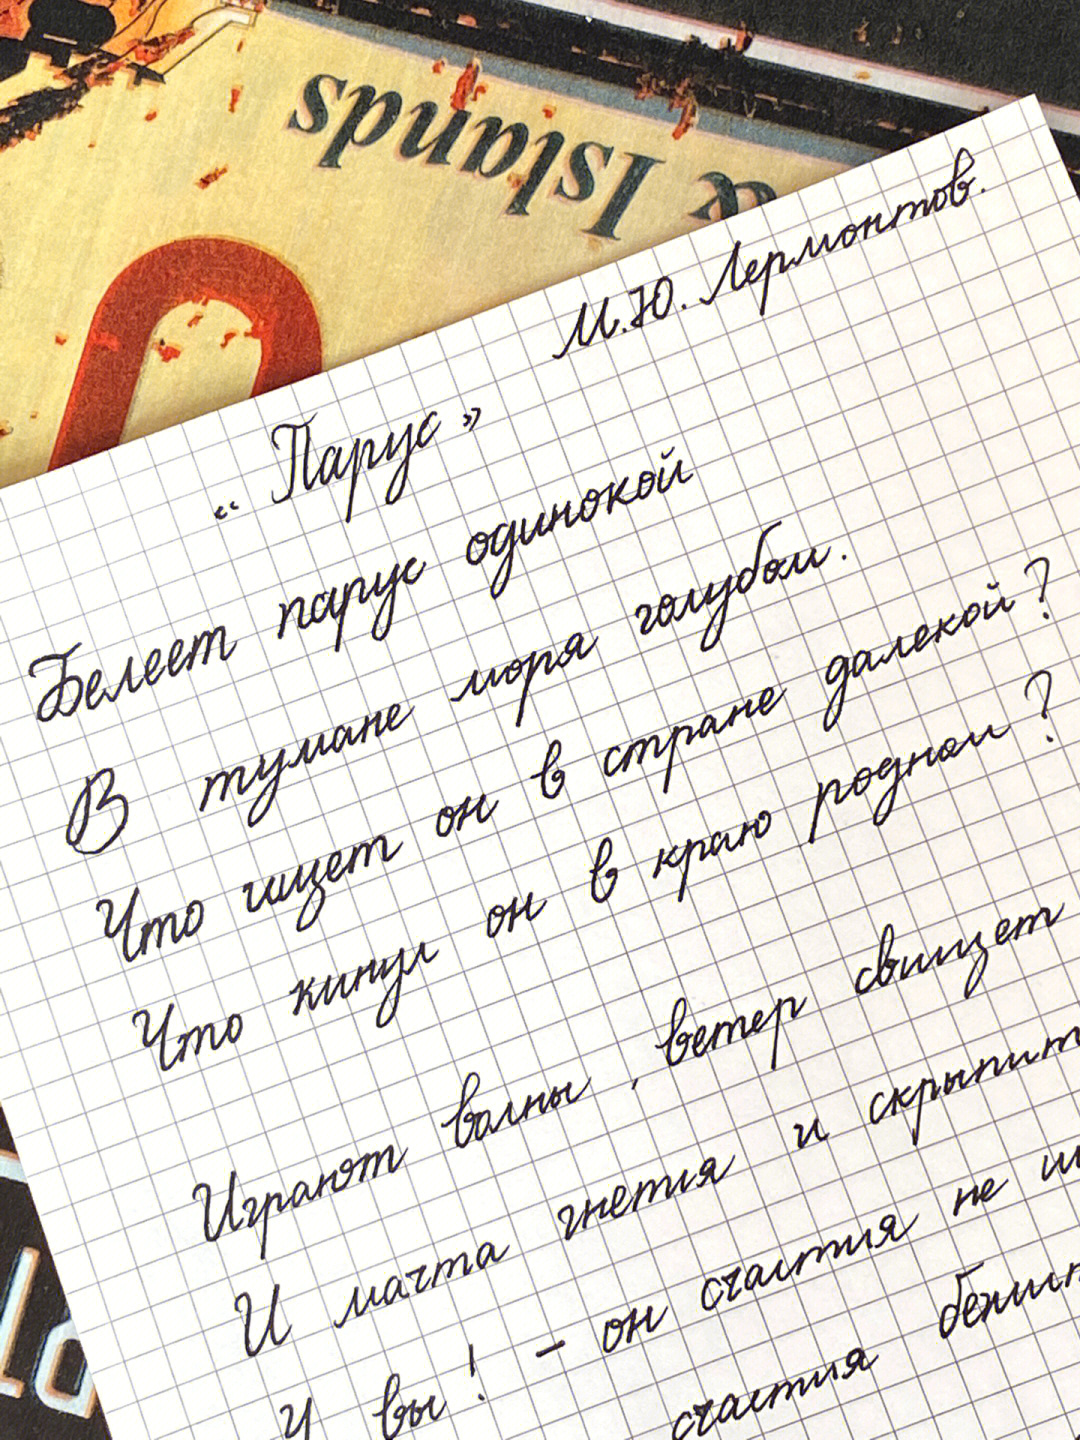 & Islands
М.Ю. Лермонтов.
"Парус"
Белеет парус одинокой
В тумане моря голубом.
Что ищет он в стране далекой?
Что кинул он в краю родном?
Играют волны, ветер свищет
И мачта гнется и скрыпит
У вы! - он счастия не
счастия бежит